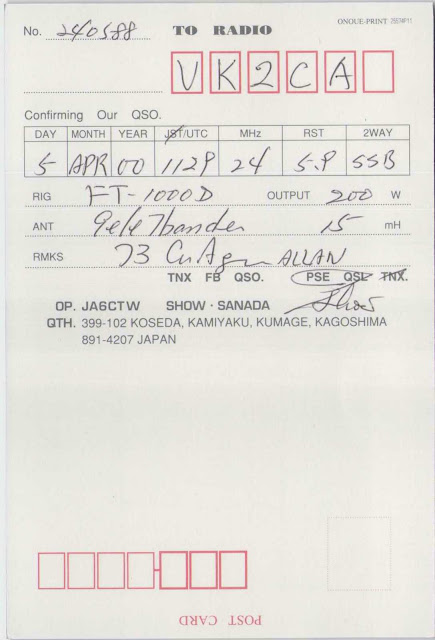 ONOUE-PRINT 25574P11
No. 240588 TO RADIO
VK2CA
Confirming Our QSO.
DAY MONTH YEAR JST/UTC MHz RST 2WAY
5 APR 00 24 SSB
RIG FT-1000D OUTPUT 200 W
ANT 15 mH
RMKS 73 ALLAN
TNX FB QSO. PSE QSL TNX.
OP. JA6CTW SHOW · SANADA
QTH. 399-102 KOSEDA, KAMIYAKU, KUMAGE, KAGOSHIMA
891-4207 JAPAN
POST CARD